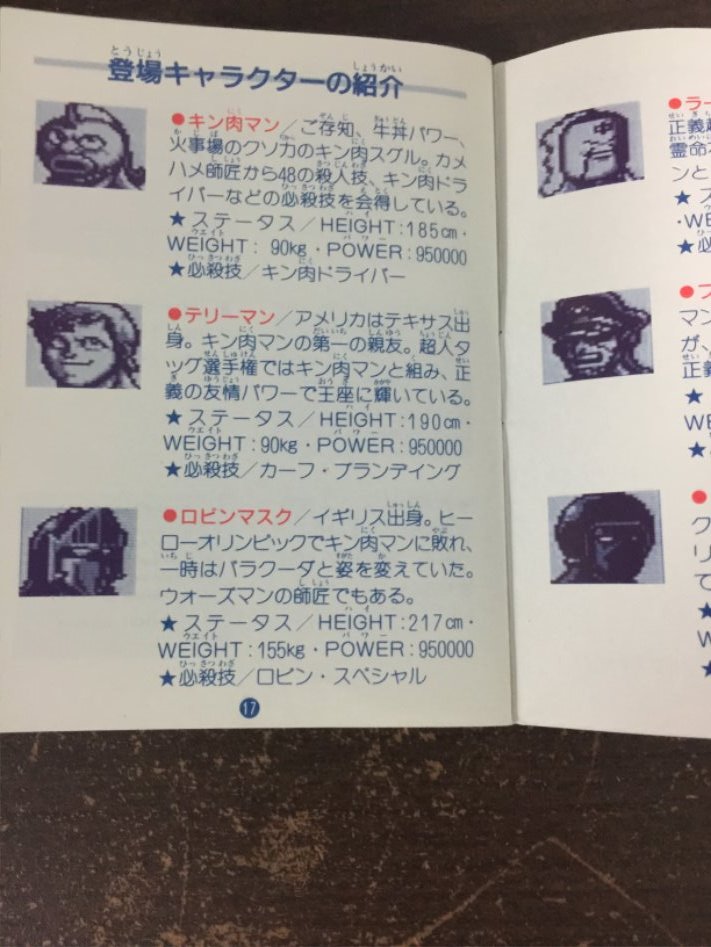 登場キャラクターの紹介
●キン肉マン／ご存知、牛丼パワー、
火事場のクソ力のキン肉スグル。カメ
ハメ師匠から48の殺人技、キン肉ドラ
イバーなどの必殺技を会得している。
★ステータス／HEIGHT:185cm・
WEIGHT: 90kg・POWER:950000
★必殺技／キン肉ドライバー
●テリーマン／アメリカはテキサス出
身。キン肉マンの第一の親友。超人タ
ッグ選手権ではキン肉マンと組み、正
義の友情パワーで王座に輝いている。
★ステータス／HEIGHT:190cm・
WEIGHT:90kg・POWER:950000
★必殺技／カーフ・ブランディング
●ロビンマスク／イギリス出身。ヒー
ローオリンピックでキン肉マンに敗れ、
一時はバラクーダと姿を変えていた。
ウォーズマンの師匠でもある。
★ステータス／HEIGHT:217cm・
WEIGHT:155kg・POWER:950000
★必殺技／ロビン・スペシャル
17
●ラー
正義
霊命
ンと
★ス
・WE
★必
●ブ
マン
が、
正義
★
WE
★
●
ク
リ
て
★
W
★